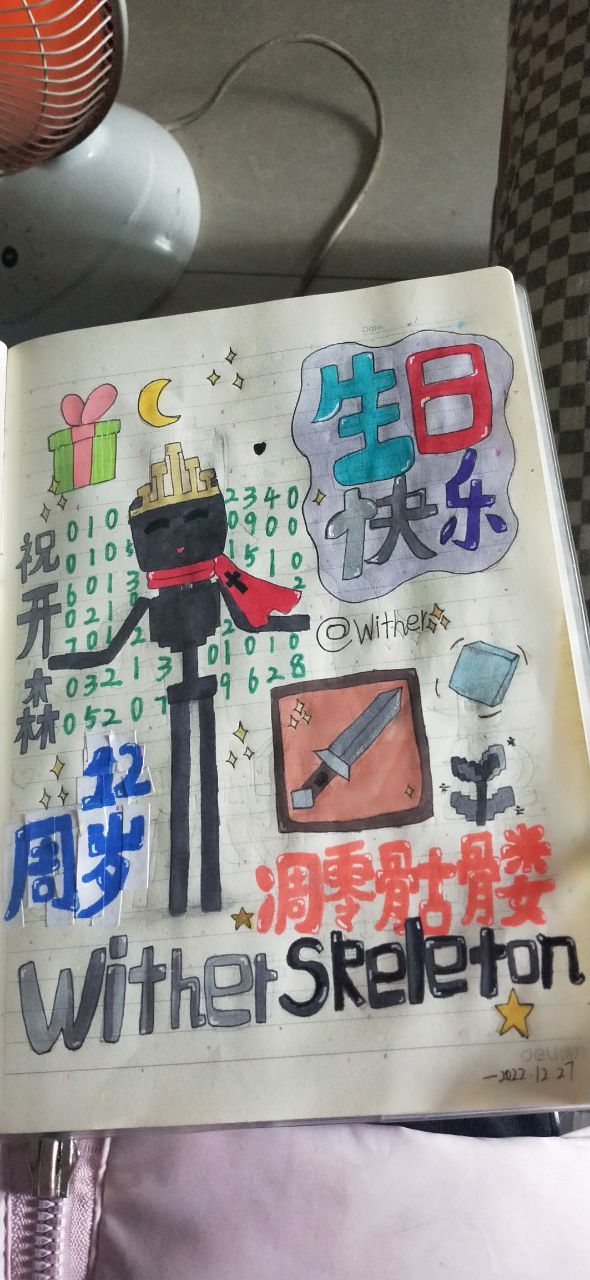 Date
生日
快乐
祝开森
2340
010
0900
0105
1510
6013
2
0210
7012
01010
03213
9628
0520
@Wither
12
周岁
凋零骷髅
Wither Skeleton
deli
—2022.12.27